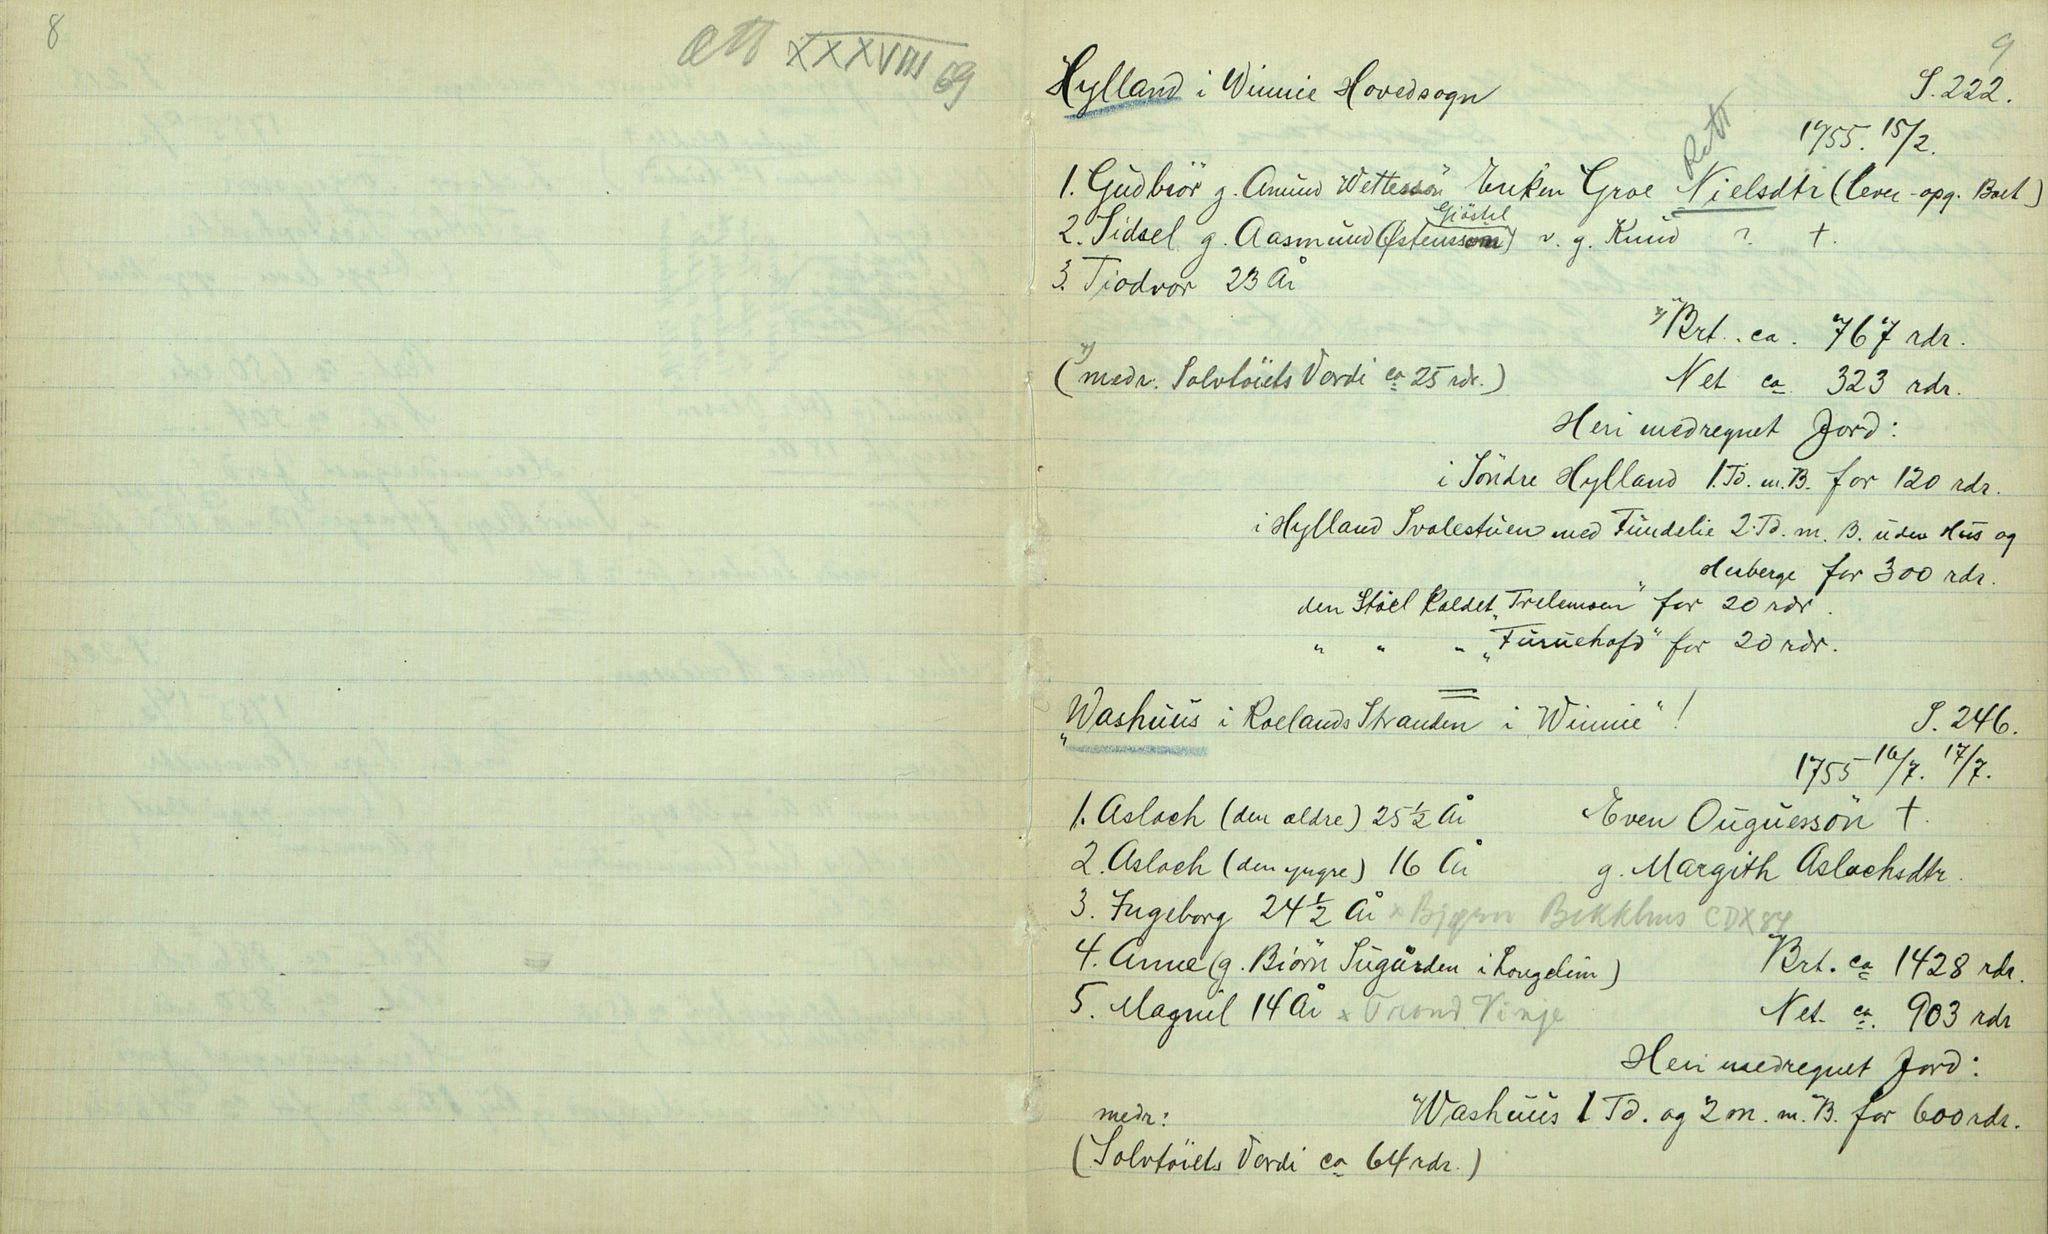 8
Att XXXVIII 69
9
Hylland i Winnie Hovedsogn S. 222.
1755. 15/2.
Rett
1. Gudbiör g. Amund Wettessön Enken Groe Nielsdtr (lever - opg. Boet)
Giöstel
2. Sidsel g. Aasmund (Østenssøn) v. g. Knud ? †.
3. Tiodvor 23 År
Brt. ca. 767 rdr.
(medr. Solvtöiets Verdi ca 25 rdr.) Net ca 323 rdr.
Heri medregnet Jord:
i Söndre Hylland 1. Td. m. B. for 120 rdr.
i Hylland Svalestuen med Fundelie 2 Td. m. B. uden Hus og
Herberge for 300 rdr.
den Stöel kaldet „Trelemoen" for 20 rdr.
" " " „Furuehofd" for 20 rdr.
„Washuus i Roelands Stranden i Winnie"! S. 246.
1755 16/7. 17/7.
1. Asloch (den ældre) 25 1/2 År Even Ouguessön †.
2. Asloch (den yngre) 16 År g. Margith Aslochsdtr.
3. Ingeborg 24 1/2 År x Bjørn Bekkhus CDX84
4. Anne (g. Biörn Sugurden i Longeliim) Brt. ca 1428 rdr.
5. Magnil 14 År x Trond Vinje Net ca. 903 rdr
Heri medregnet Jord:
medr: Washuus 1 Td. og 2 m. m. B. for 600 rdr.
(Solvtöiets Verdi ca 64 rdr.)